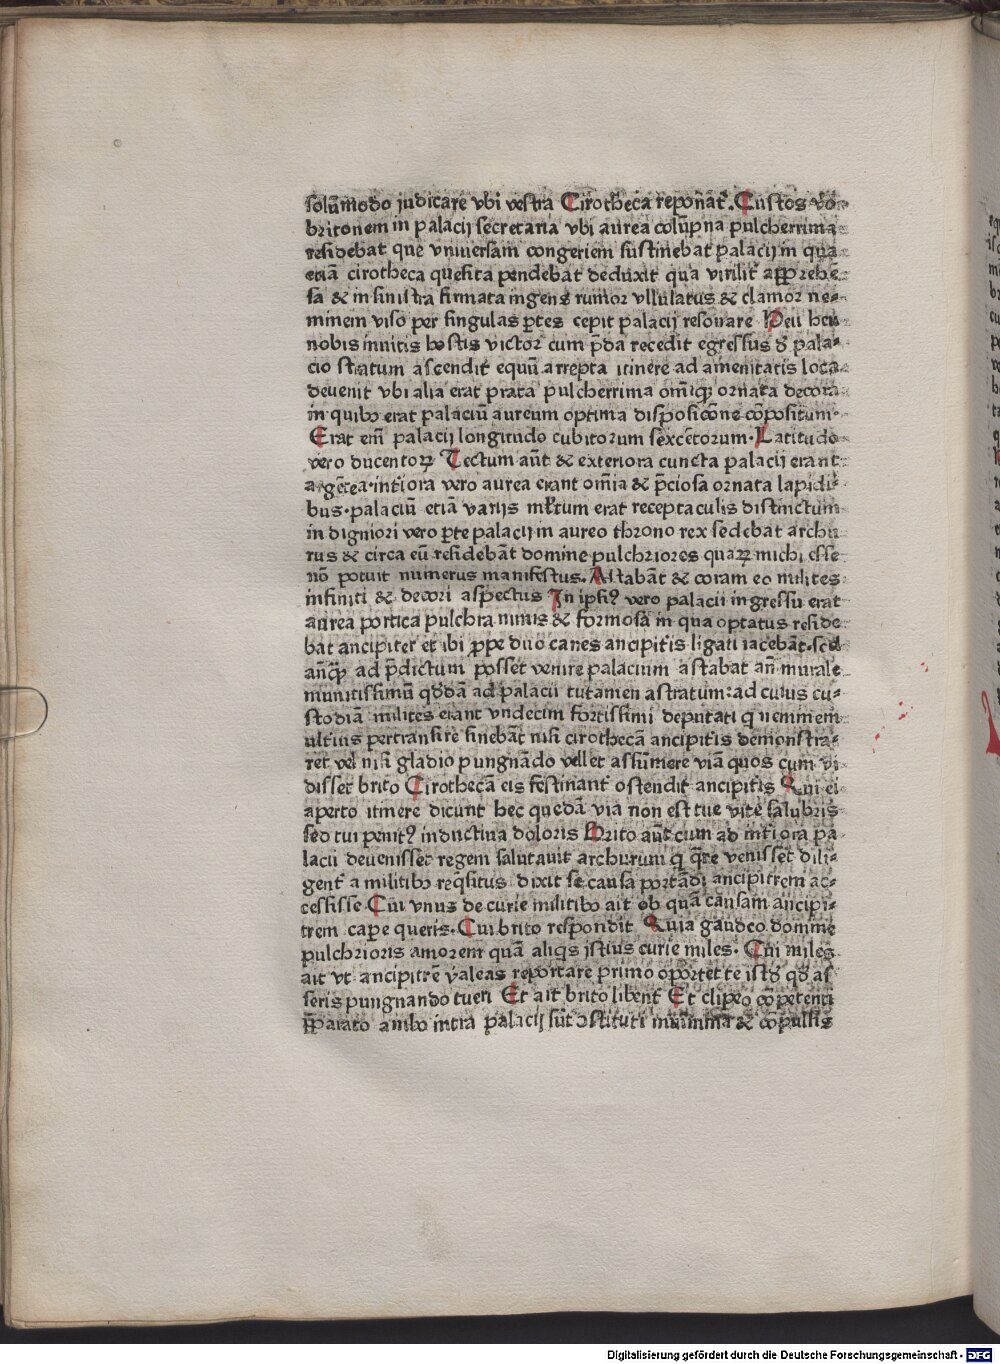 solūmodo iudicare vbi vestra Cirotheca reponat᷑. Custos vo
britonem in palacij secretaria vbi aurea colūpna pulcherrima
residebat que vniuersam congeriem sustinebat palacij in qua
etiā cirotheca quesita pendebat deduxit qua virilit᷑ apprehē
sa & in sinistra firmata ingens rumor vllulatus & clamor ne⸗
minem viso per singulas ꝑtes cepit palacij resonare Heu heu
nobis inuitis hostis victor cum p̄da recedit egressus ꝺ pala⸗
cio stratum ascendit equū arrepta itinere ad amenitatis loca
deuenit vbi alia erat prata pulcherrima om̄iqꝫ ornata decora
in quibꝰ erat palaciū aureum optima disposicōne cōpositum.
Erat em̄ palacij longitudo cubitorum sexcētorum. Latitudo
vero ducentoꝝ Tectum aūt & exteriora cuncta palacij erant
argētea. int᷑iora vero aurea erant om̄ia & p̄ciosa ornata lapidi⸗
bus. palaciū etiā varijs ml̄tum erat receptaculis distinctum
in digniori vero ꝑte palacij in aureo throno rex sedebat archu
rus & circa eū residebāt domine pulchriores quaꝝ michi esse
nō potuit numerus manifestus. Astabāt & coram eo milites
infiniti & decori aspectus In ipsiꝰ vero palacii ingressu erat
aurea portica pulchra nimis & formosa in qua optatus reside
bat ancipiter et ibi ꝓpe duo canes ancipit᷑is ligati iacebāt. sed
anq̄ꝫ ad p̄dictum posset venire palacium astabat an̄ murale
munitissimū qꝺdā ad palacii tutamen astratum: ad cuius cu⸗
stodiā milites erant vndecim fortissimi deputati q neminem
ult᷑ius pertransire sinebāt nisi cirothecā ancipit᷑is demonstra⸗
ret vel nisi gladio pungnādo vellet assūmere viā quos cum vi
disset brito Cirothecā eis festinant᷑ ostendit ancipit᷑is Qui ei
aperto itinere dicunt hec quedā via non est tue vite salubris
sed tui penitꝰ inductiua doloris Brito aūt cum ad int᷑iora pa
lacii deuenisset regem salutauit archurum q q̄re venisset dili⸗
gent᷑ a militibꝰ req̄situs dixit se causa portādi ancipitrem ac⸗
cessisse Cui vnus de curie militibꝰ ait ob quā causam ancipi⸗
trem caꝑe queris. Cui brito respondit Quia gaudeo domine
pulchrioris amorem quā aliqs istius curie miles. Cui miles
ait vt ancipitrē valeas reportare primo oportet te istꝺ qꝺ as
seris pungnando tueri Et ait brito libent᷑ Et clipeo cōpetenti
p̄parato ambo intra palacij sūt ꝯstituti & cōpulsis